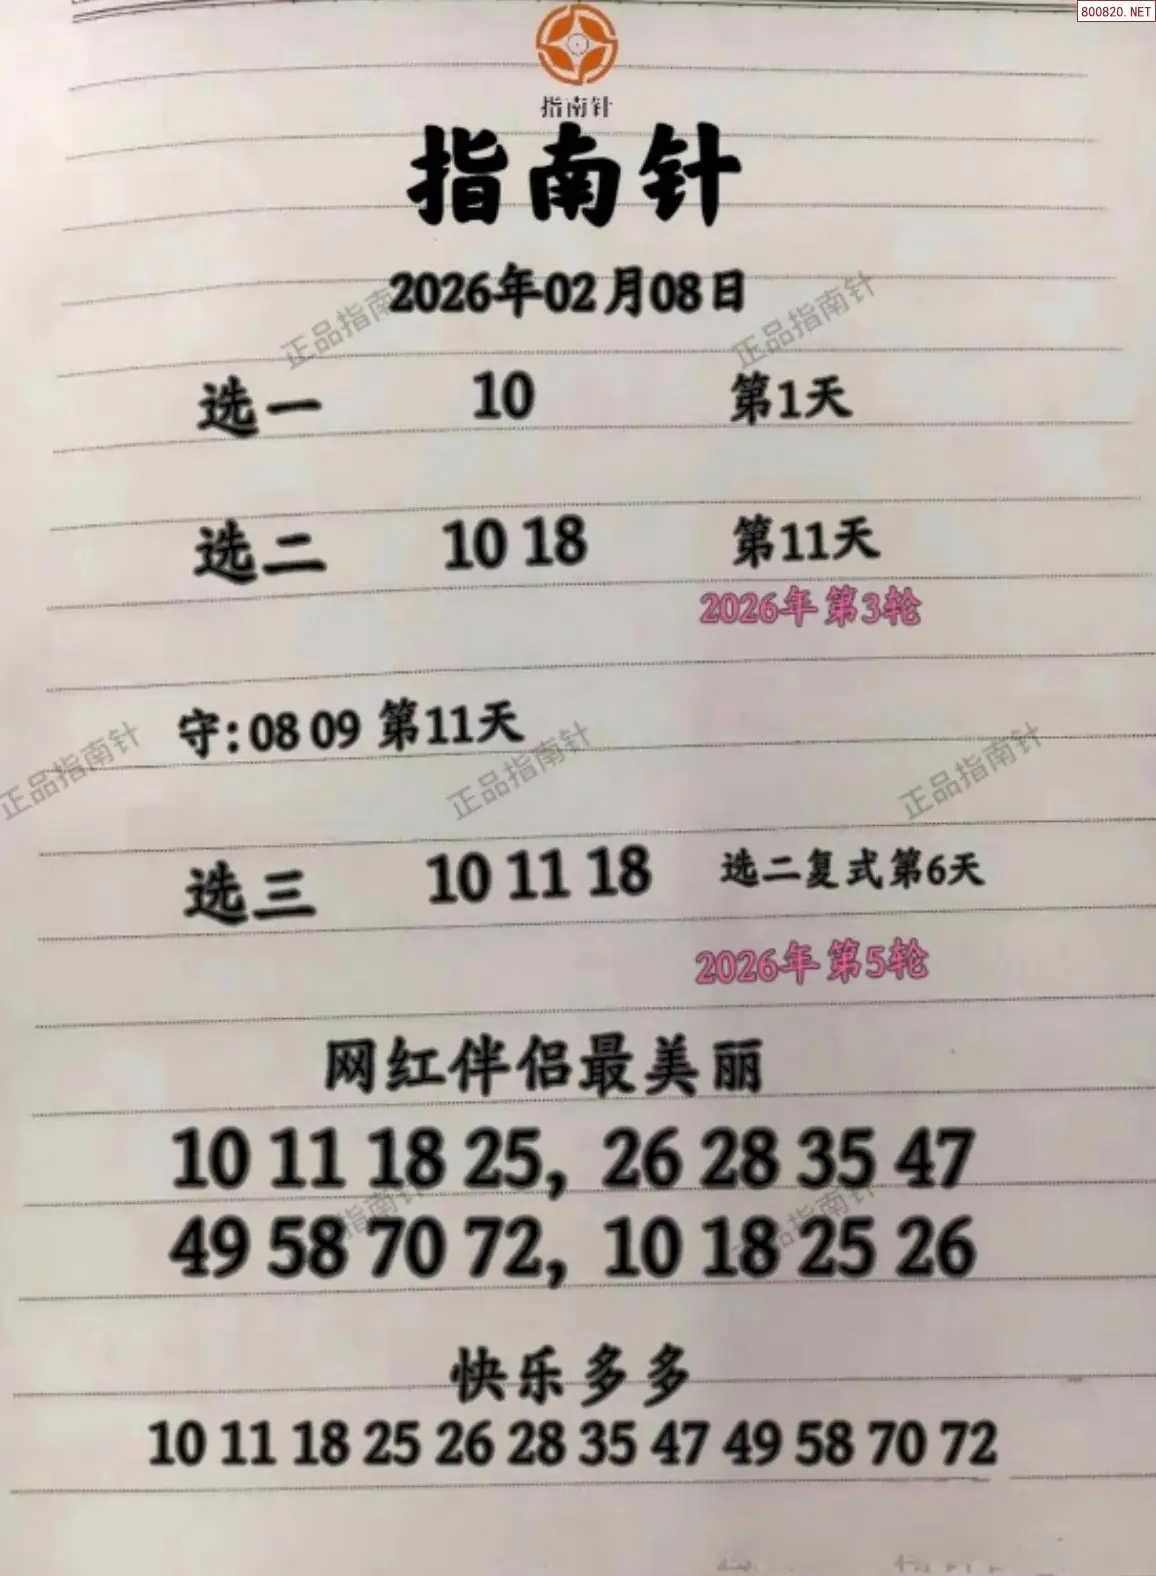 800820.NET
指南针
指南针
2026年02月08日
选一 10 第1天
选二 10 18 第11天
2026年第3轮
守:08 09 第11天
选三 10 11 18 选二复式第6天
2026年第5轮
网红伴侣最美丽
10 11 18 25, 26 28 35 47
49 58 70 72, 10 18 25 26
快乐多多
10 11 18 25 26 28 35 47 49 58 70 72
正品指南针
正品指南针
正品指南针
正品指南针
正品指南针
指南针
指南针